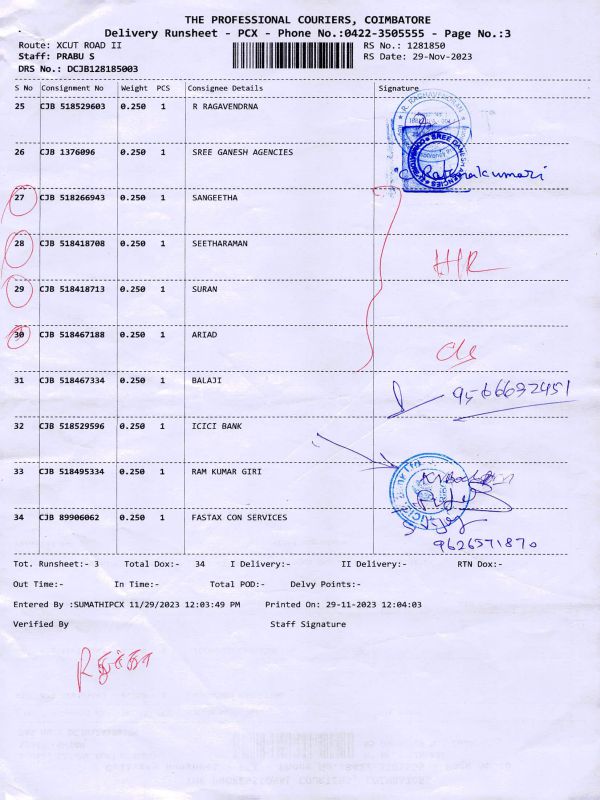 THE PROFESSIONAL COURIERS, COIMBATORE
Delivery Runsheet - PCX - Phone No.:0422-3505555 - Page No.:3
Route: XCUT ROAD II RS No.: 1281850
Staff: PRABU S RS Date: 29-Nov-2023
DRS No.: DCJB128185003
S No Consignment No Weight PCS Consignee Details Signature
25 CJB 518529603 0.250 1 R RAGAVENDRNA
26 CJB 1376096 0.250 1 SREE GANESH AGENCIES
SREE GANESH AGENCIES
27 CJB 518266943 0.250 1 SANGEETHA
28 CJB 518418708 0.250 1 SEETHARAMAN
29 CJB 518418713 0.250 1 SURAN
30 CJB 518467188 0.250 1 ARIAD
31 CJB 518467334 0.250 1 BALAJI
32 CJB 518529596 0.250 1 ICICI BANK
33 CJB 518495334 0.250 1 RAM KUMAR GIRI
34 CJB 89906062 0.250 1 FASTAX CON SERVICES
9626571870
Tot. Runsheet:- 3 Total Dox:- 34 I Delivery:- II Delivery:- RTN Dox:-
Out Time:- In Time:- Total POD:- Delvy Points:-
Entered By :SUMATHIPCX 11/29/2023 12:03:49 PM Printed On: 29-11-2023 12:04:03
Verified By Staff Signature